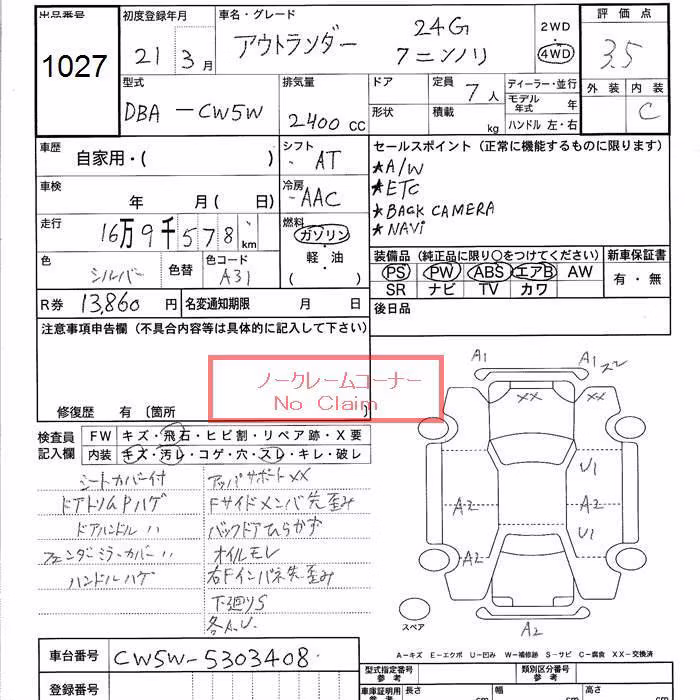 出品番号 初度登録年月 車名・グレード 2WD 評価点
1027 21年 3月 アウトランダー 24G 7ニンノリ 4WD 3.5
外装 内装
C
型式 排気量 ドア 定員 ディーラー・並行
DBA-CW5W 2400cc 7人 モデル年式 年
形状 積載 kg ハンドル 左・右
車歴 自家用・( ) シフト AT セールスポイント(正常に機能するものに限ります)
★A/W
車検 年 月( 日) 冷房 AAC ★ETC
★BACK CAMERA
走行 16万9千578km 燃料 ガソリン ★NAVi
・軽・油
( )
色 シルバー 色替 色コード A31
装備品(純正品に限り○をつけてください) 新車保証書
PS PW ABS エアB AW 有・無
SR ナビ TV カワ
R券 13,860円 名変通知期限 月 日 後日品
注意事項申告欄(不具合内容等は具体的に記入して下さい)
ノークレームコーナー
No Claim
修復歴 有(箇所 )
検査員記入欄 FW キズ・飛石・ヒビ割・リペア跡・X要
内装 キズ・汚レ・コゲ・穴・スレ・キレ・破レ
シートカバー付 アッパサポートXX
ドアトリムPハゲ Fサイドメンバ先歪み
ドアハンドル 〃 バックドアひらかず
フェンダーミラーカバー 〃 オイルモレ
ハンドルハゲ 右Fインパネ先歪み
下廻りS
各A.U.
A1 A1
XX XX
U1
A2 A2
U1
A2
A2
スペア
A-キズ E-エクボ U-凹み W-補修跡 S-サビ C-腐食 XX-交換済
車台番号 CW5W-5303408
型式指定番号 参考 類別区分番号 参考
登録番号 車庫証明用 参考 長さ cm 幅 cm 高さ cm